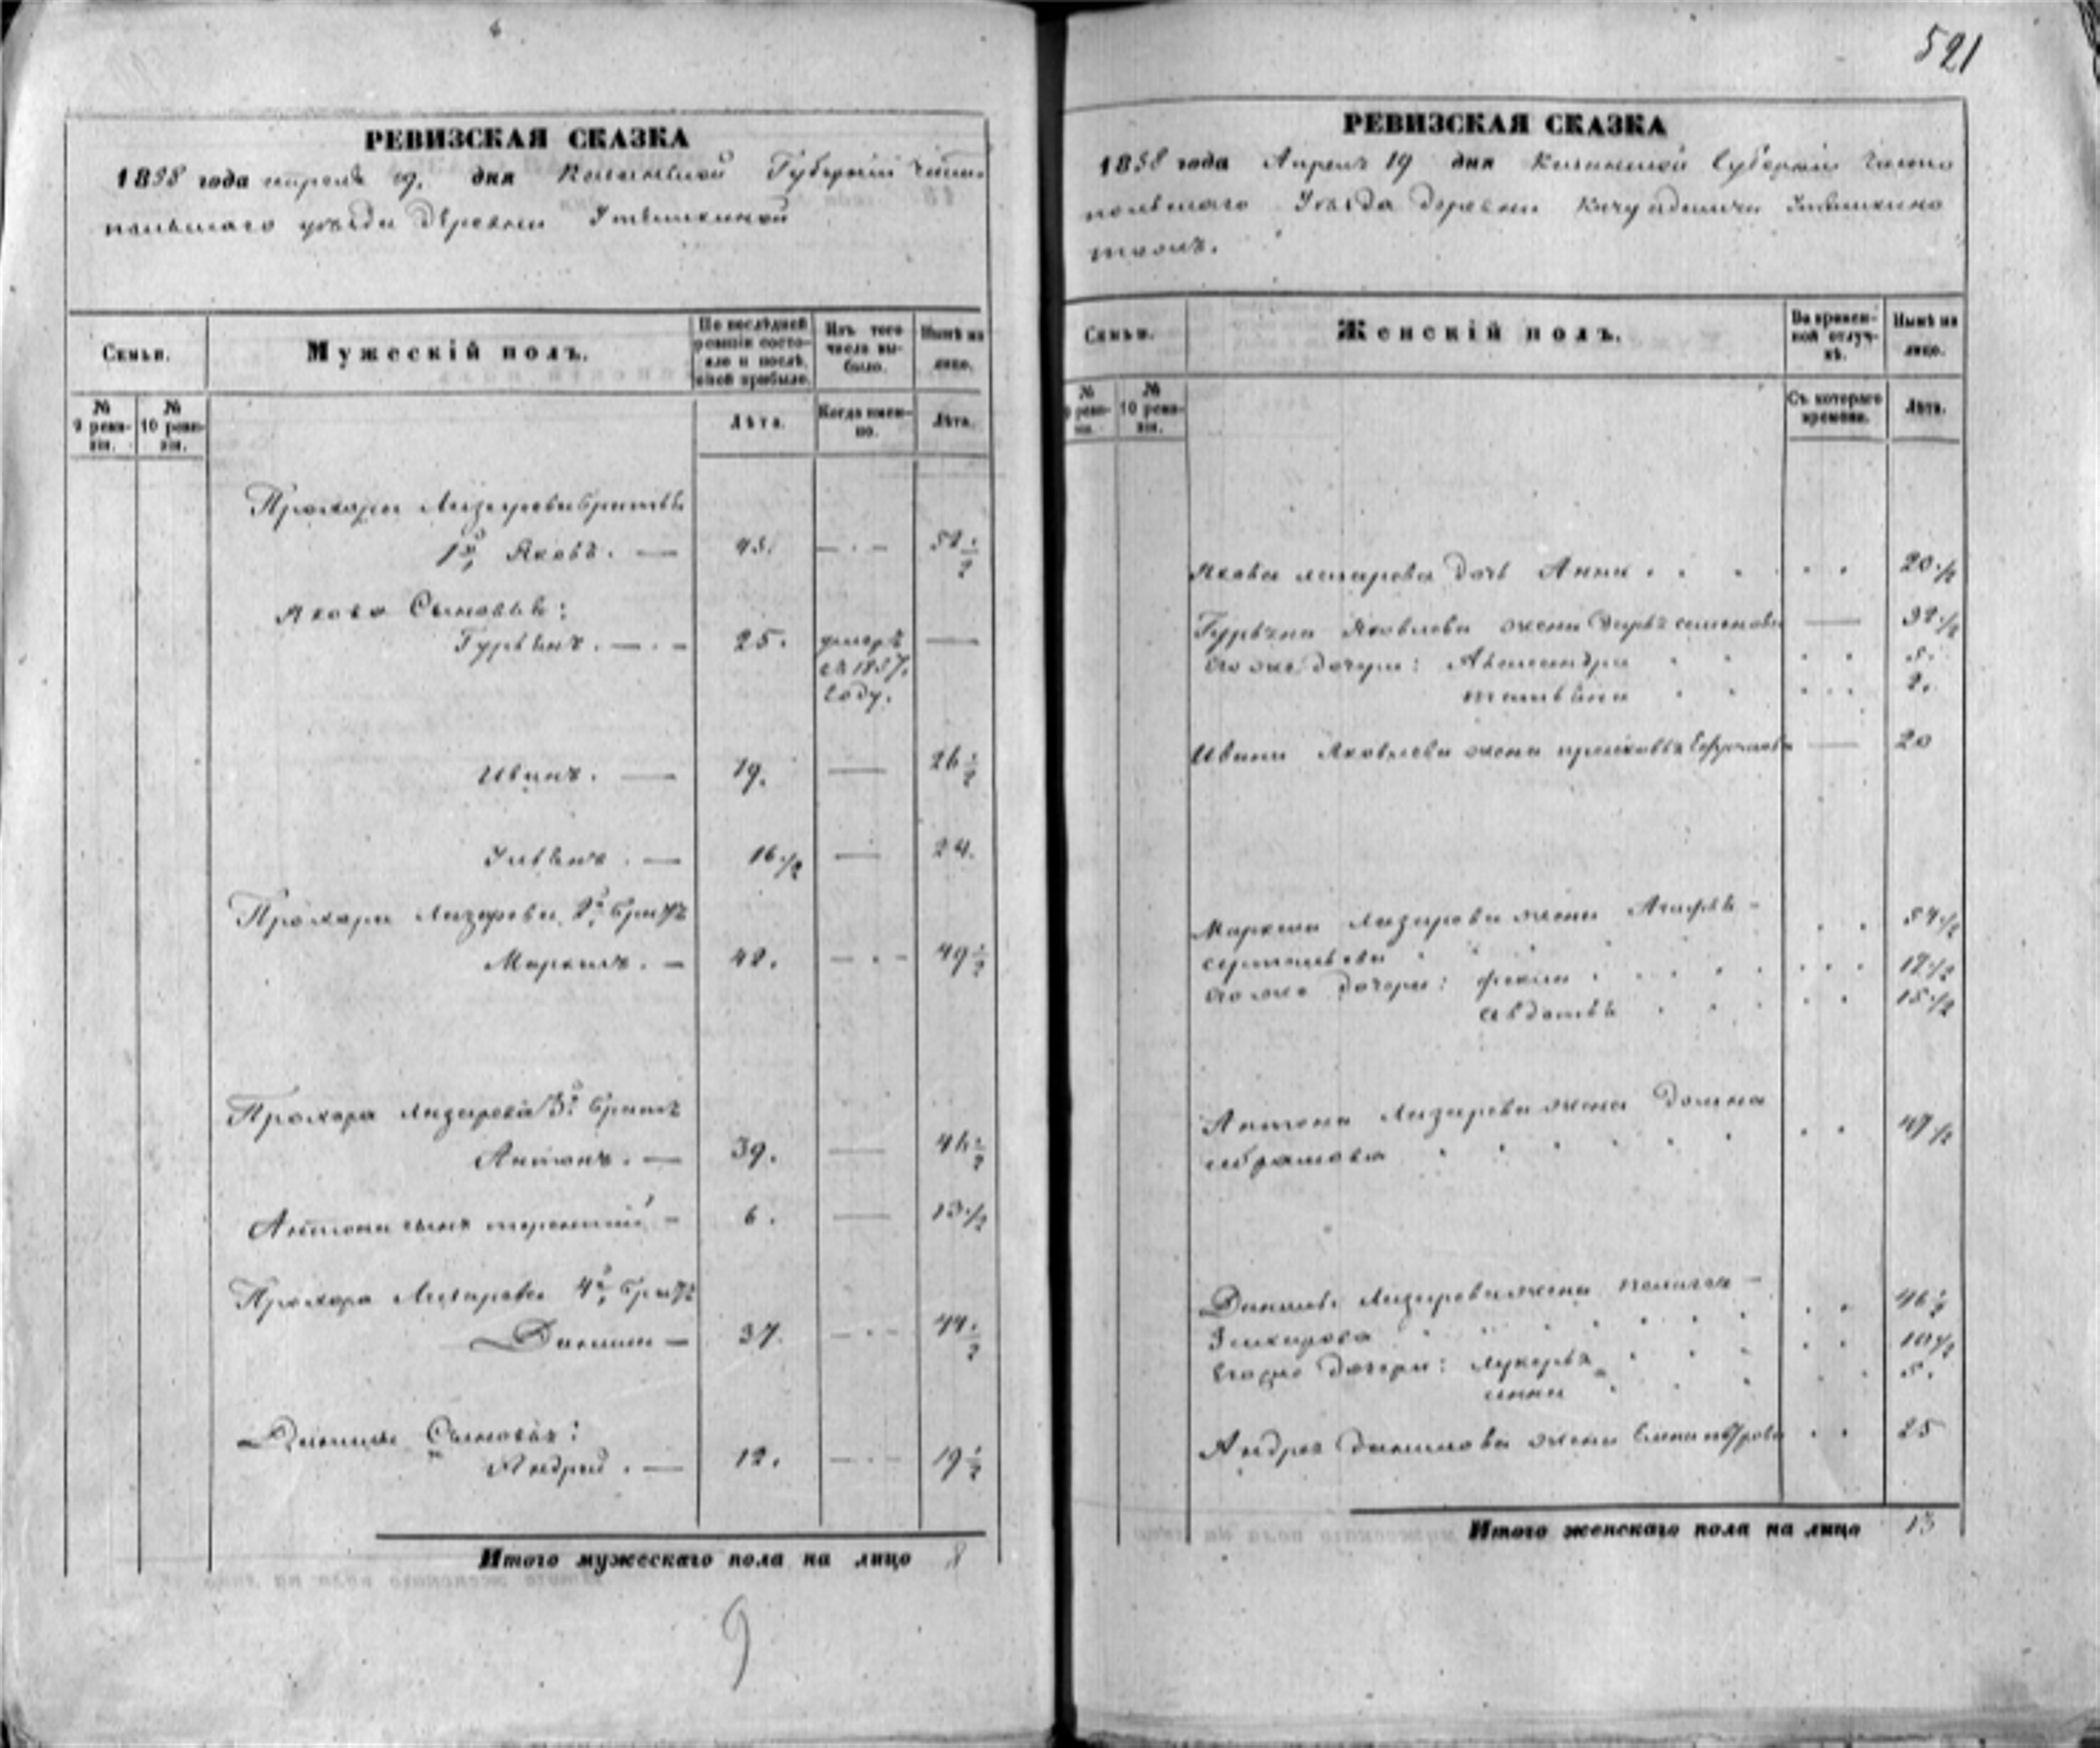 521
РЕВИЗСКАЯ СКАЗКА
1858 года апреля 19. дня Казанской Губернии Чисто
польскаго уезда Деревни
Семьи.
Мужескій полъ.
По послѣдней ревизіи состояло и послѣ оной прибыло.
Изъ того числа выбыло.
Нынѣ на лицо.
№ 9 ревизіи.
№ 10 ревизіи.
Лѣта.
Когда именно.
Лѣта.
Прохора Лазарева братья
1й Яковъ. — 45. — . — 52 1/2
Якова Сыновья:
Гурьянъ. — . — 25. умеръ —
въ 1857.
году.
Иванъ. — 19. — 26 1/2
Ульянъ. — 16 1/2 — 24.
Прохора Лазарева 2й братъ
Маркелъ. — 42. — . — 49 1/2
Прохора Лазарева 3й братъ
Антонъ. — 39. — 46 1/2
Антона сынъ терентий — 6. — 13 1/2
Прохора Лазарева 4й братъ
Данила — 37. — . — 44 1/2
Данилы Сыновья:
Андрей. — 12. — . — 19 1/2
Итого мужескаго пола на лицо 8
9
РЕВИЗСКАЯ СКАЗКА
1858 года Апреля 19 дня Казанской Губернии Чисто
польскаго Уезда деревни
тожъ.
Семьи.
Женскій полъ.
Во временной отлучкѣ.
Нынѣ на лицо.
№ 9 ревизіи.
№ 10 ревизіи.
Съ котораго времени.
Лѣта.
Якова лазарева дочь Анна . . . . . 20 1/2
Гурьяна Яковлева жена Дарья семенова — 32 1/2
его же дочери: Александра . . . . 5.
татьяна . . . . . 2.
Ивана Яковлева жена прасковья — 20
Маркела Лазарева жена Агафья — . . 54 1/2
его же дочери: фекла . . . . . 17 1/2
авдотья . . . . . 15 1/2
Антона Лазарева жена Домна
абрамова . . . . . . 49 1/2
Данилы Лазарева жена пелагея — . . 46 1/2
Захарова
Его же дочери: лукерья . . . 10 1/2
анна . . . 5.
Андрея данилова жена Елена петрова . . 25
Итого женскаго пола на лицо 13